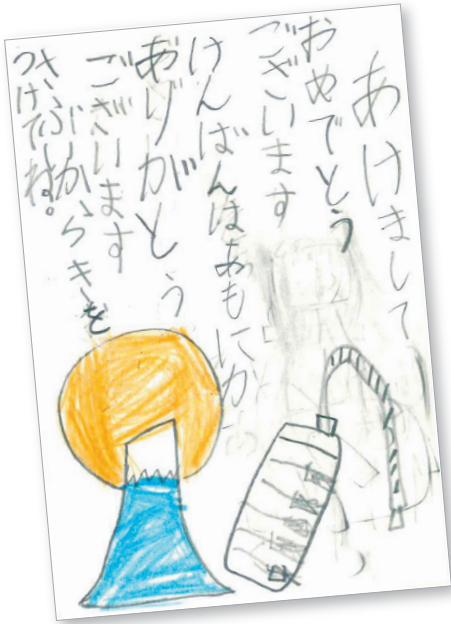 あけまして
おめでとう
ございます
けんばんはあもにか
ありがとう
ございます
さぶいからきを
つけてね。